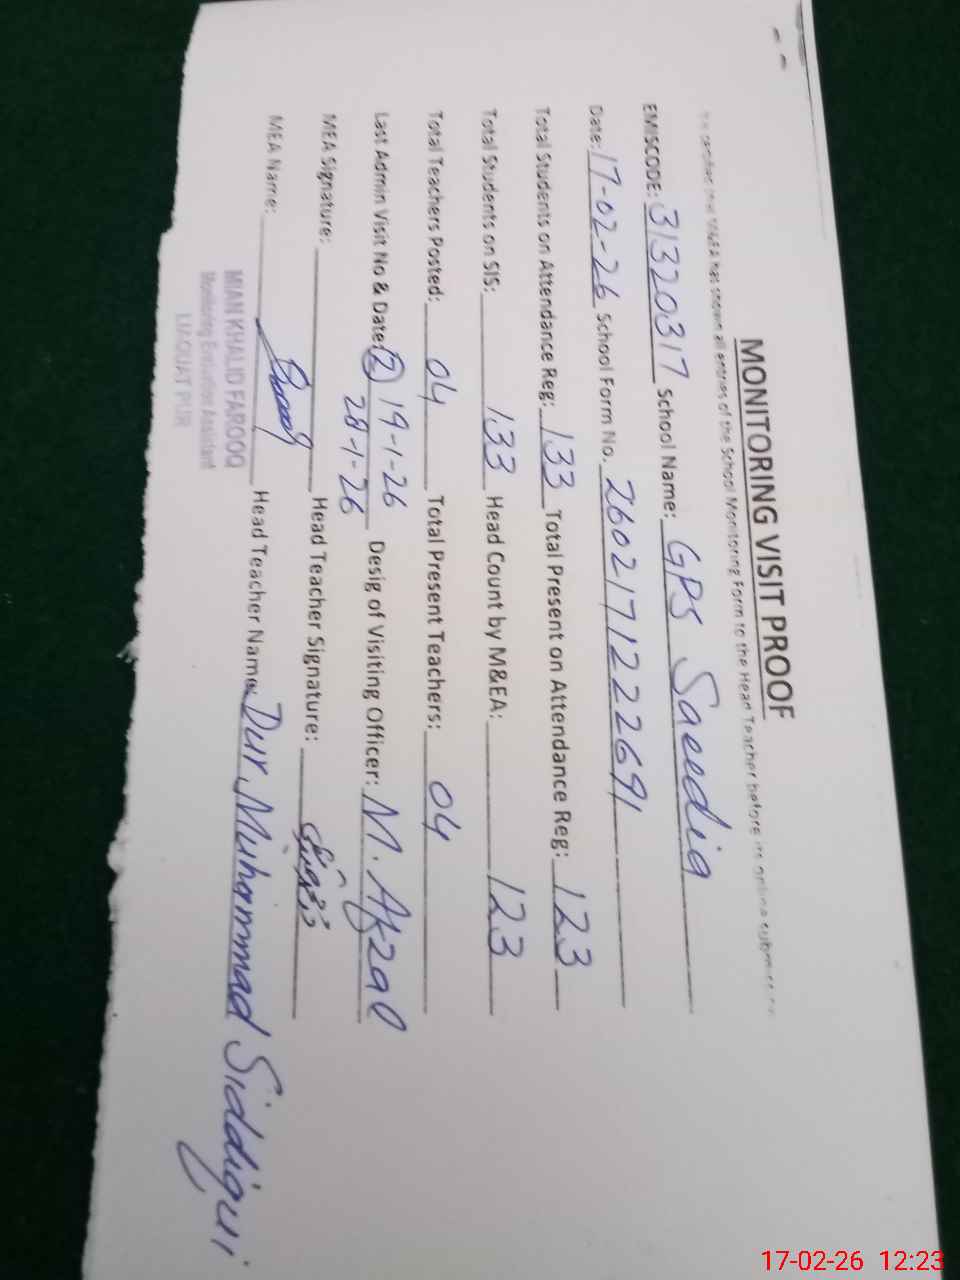 MONITORING VISIT PROOF
To certifiec that M&EA has shown all entries of the School Monitoring Form to the Head Teacher before its online submission
EMISCODE: 31320317 School Name: GPS Saeedia
Date: 17-02-26 School Form No. 260217122691
Total Students on Attendance Reg: 133 Total Present on Attendance Reg: 123
Total Students on SIS: 133 Head Count by M&EA: 123
Total Teachers Posted: 04 Total Present Teachers: 04
Last Admin Visit No & Date: (2) 19-1-26 Desig of Visiting Officer: M. Afzal
28-1-26
MEA Signature: Head Teacher Signature:
MEA Name: Head Teacher Name: Dur Muhammad Siddiqui
MIAN KHALID FAROOQ
Monitoring Evaluation Assistant
LIAQUAT PUR
17-02-26 12:23